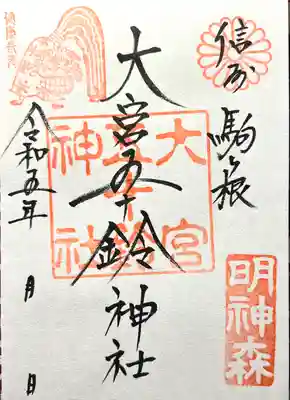 信州
駒ヶ根
大宮五十鈴神社
令和五年　月　日
大宮
五十鈴
神社
明神森